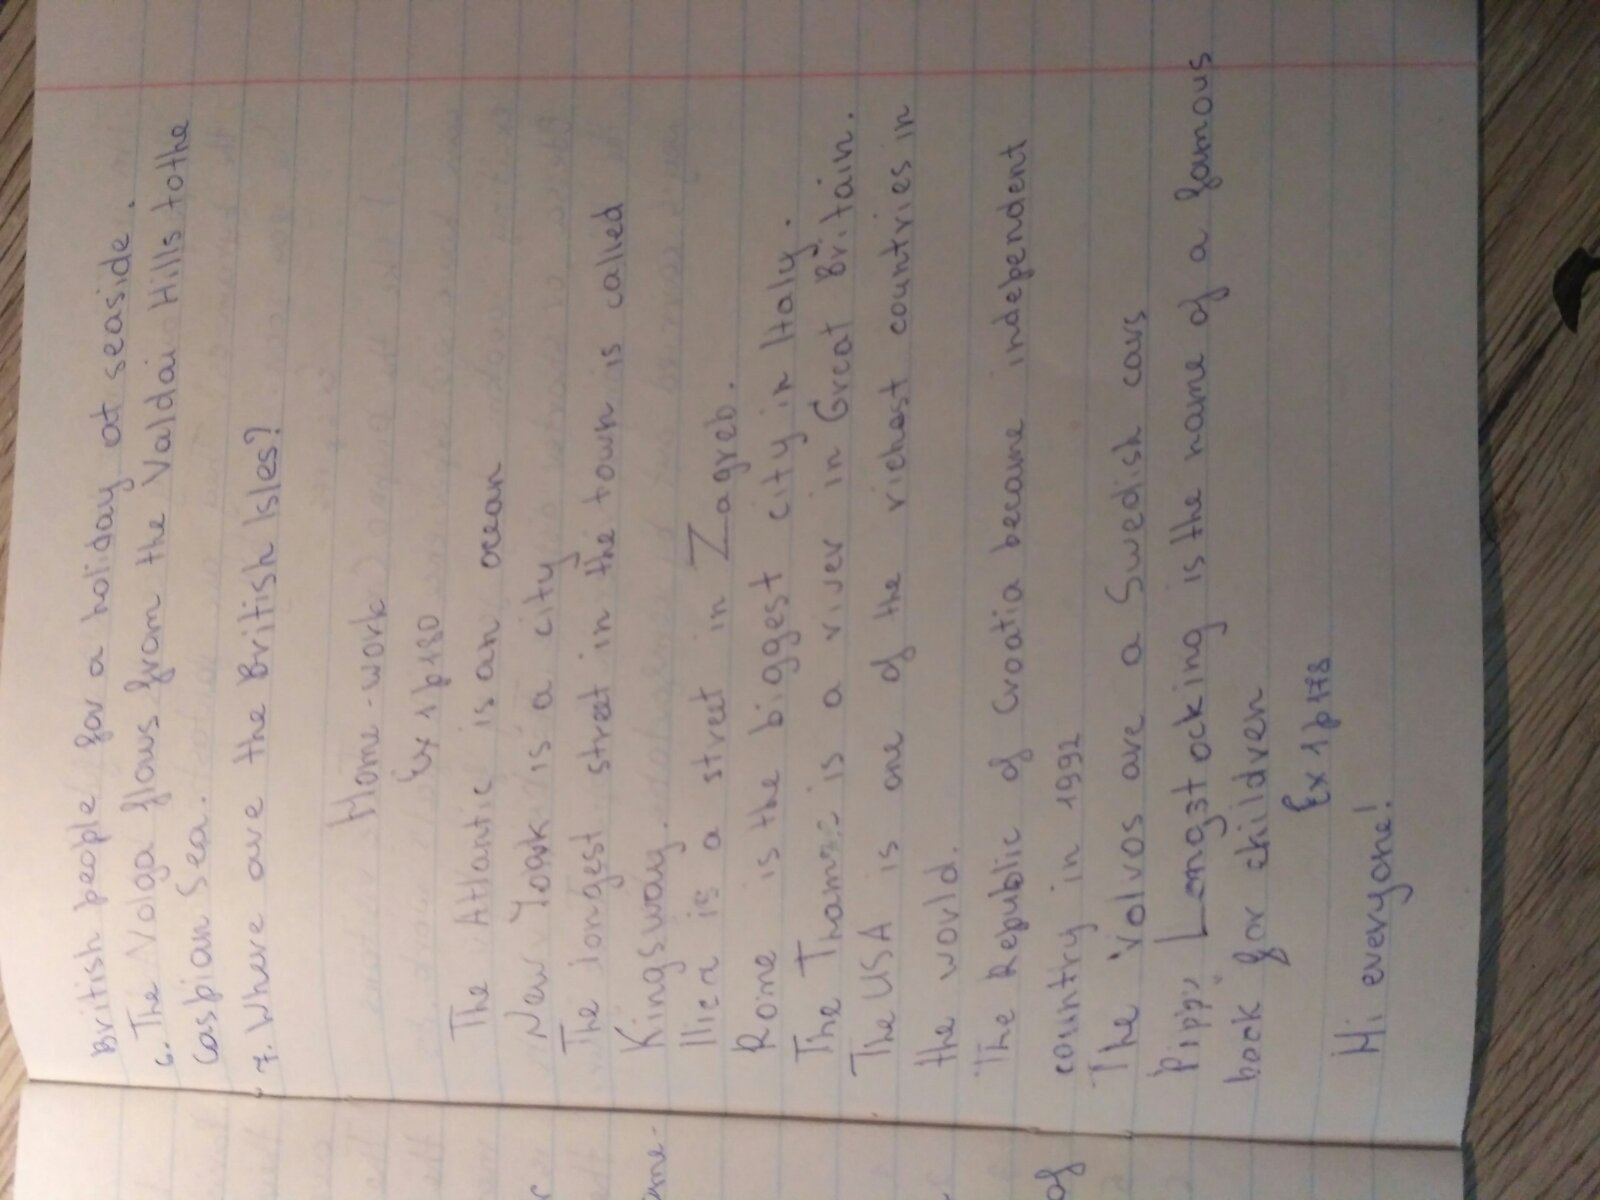 British people for a holiday at seaside.
6. The Volga flows from the Valdai Hills to the
Caspian Sea.
7. Where are the British Isles?
Home-work
Ex 1 p 180
The Atlantic is an ocean
New York is a city
The longest street in the town is called
Kingsway.
Ilica is a street in Zagreb.
Rome is the biggest city in Italy.
The Thames is a river in Great Britain.
The USA is one of the richest countries in
the world.
The Republic of Croatia became independent
country in 1992
The Volvos are a Swedish cars
Pippi Longstocking is the name of a famous
book for children
Ex 1 p 178
Hi everyone!
of